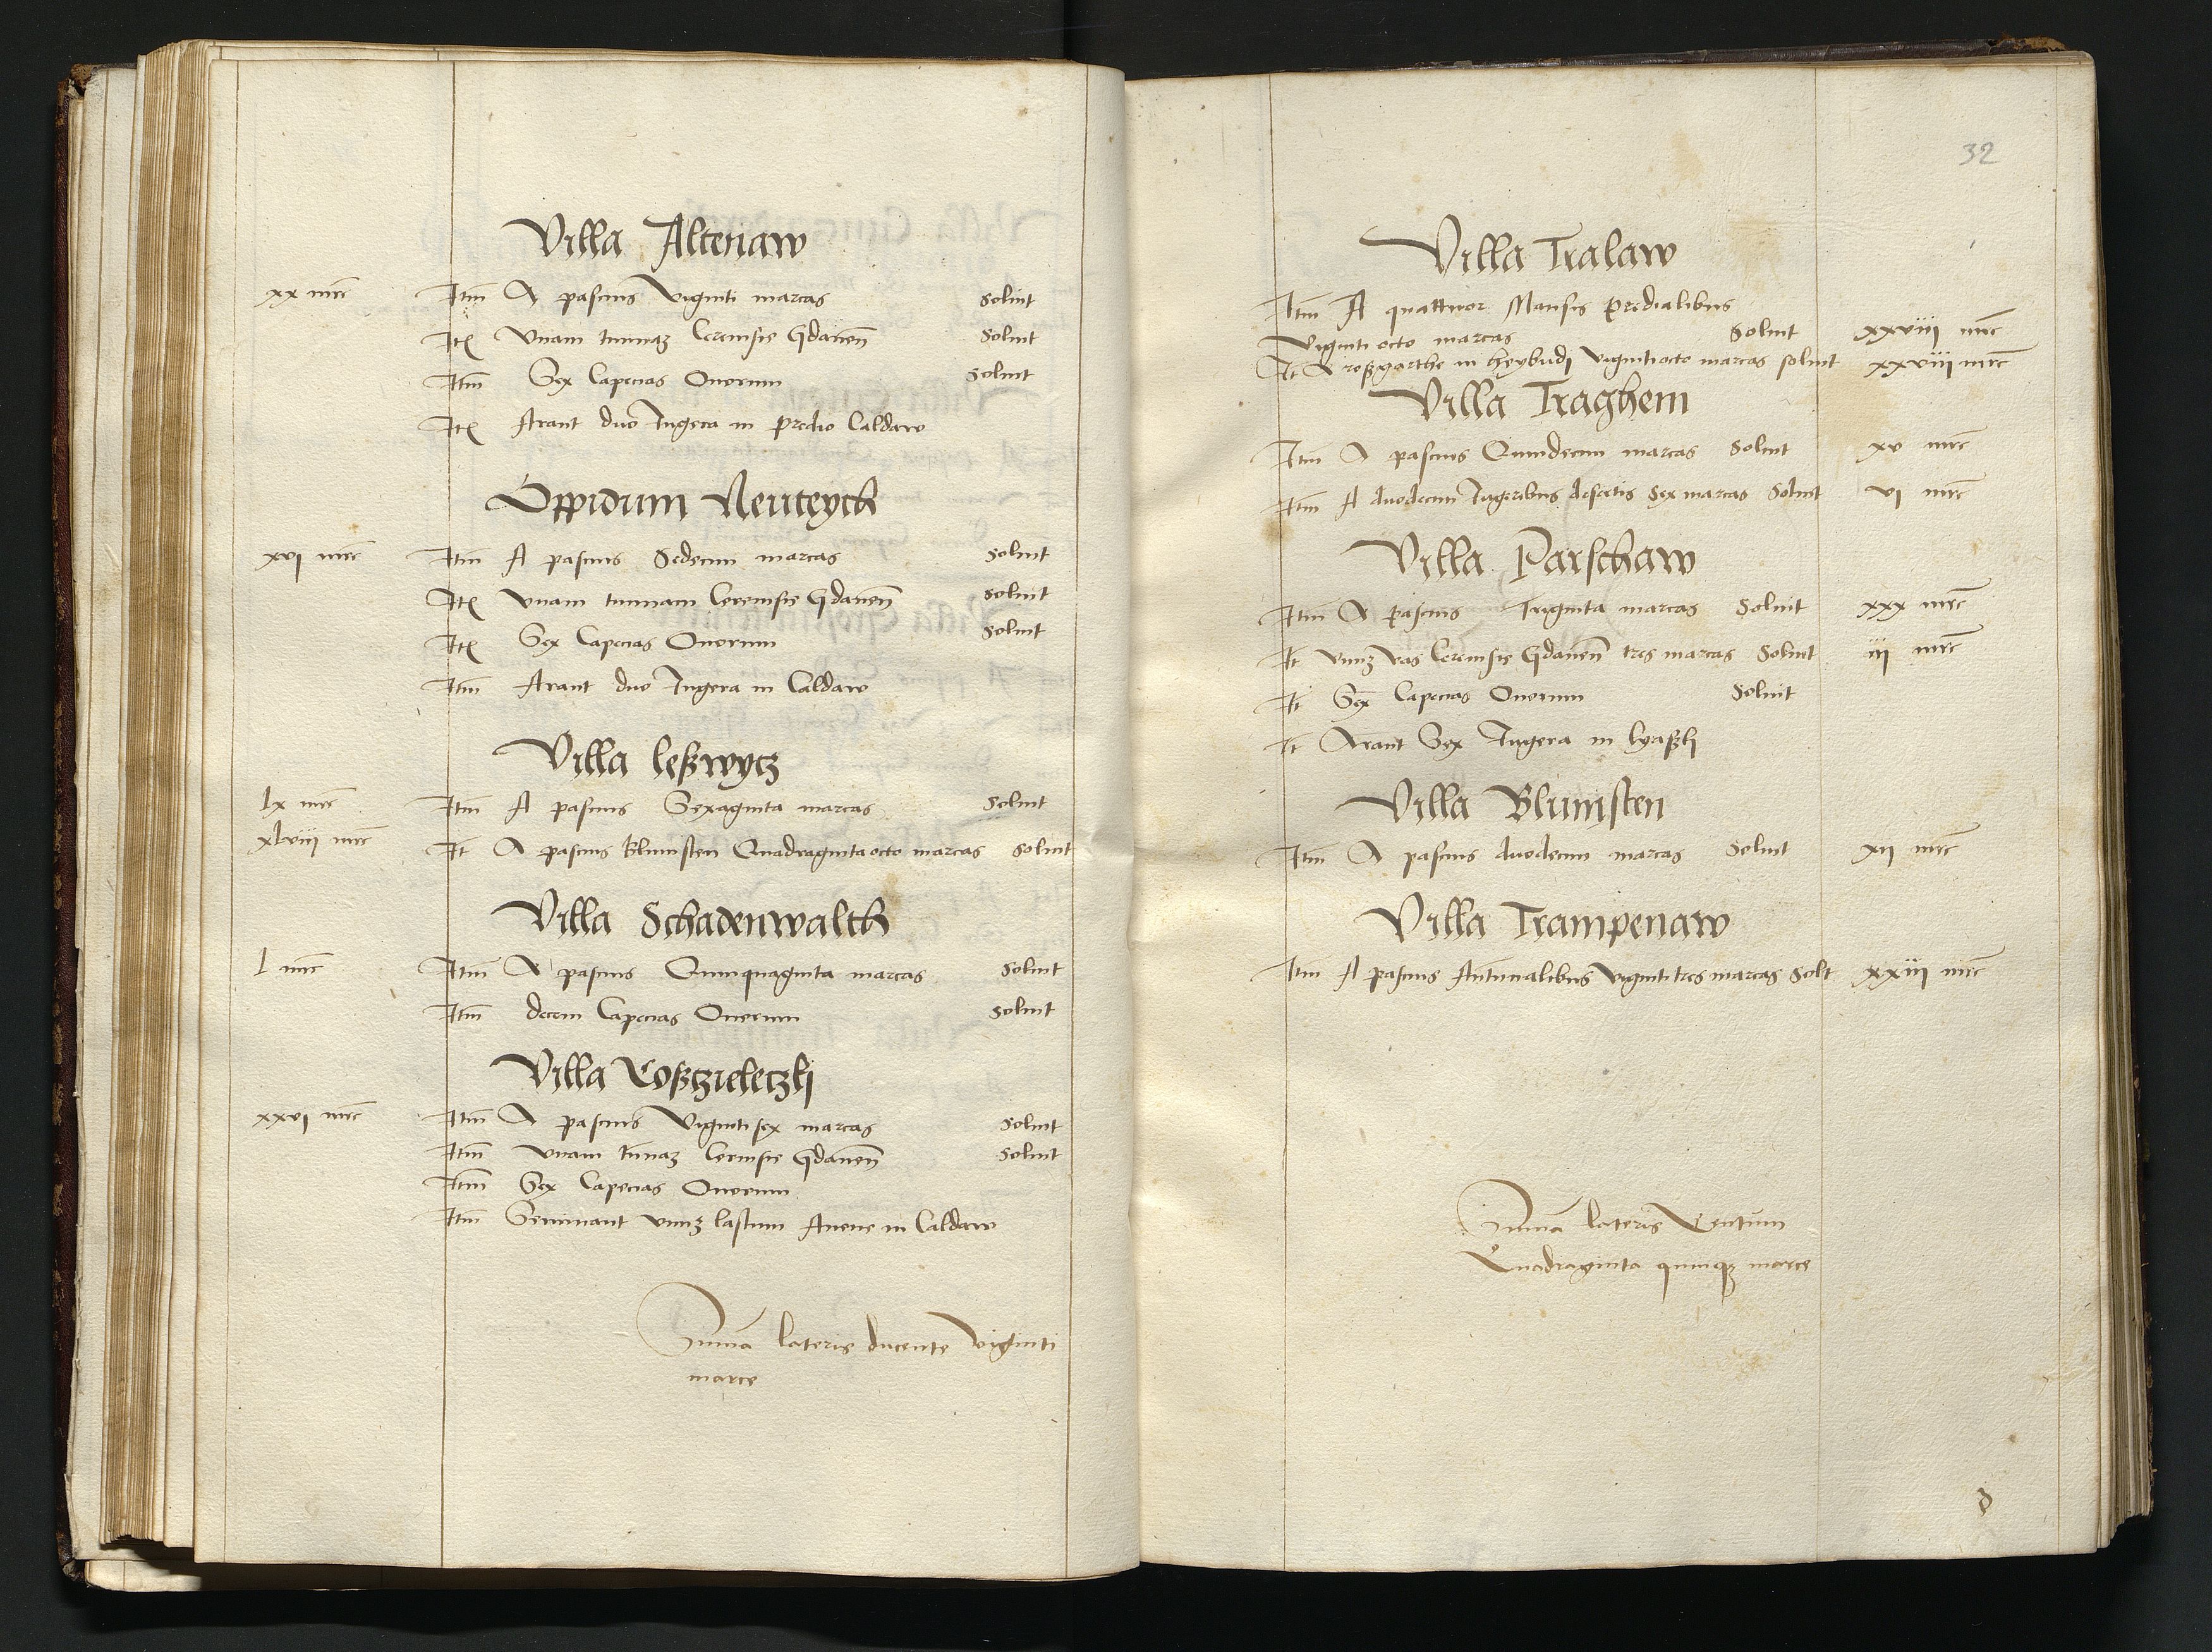 Villa Altenaw
xx mrc Itm A pascuis Viginti marcas Soluit
Itē Vnam tunnaʒ Cereuisie Gdaneñ Soluit
Itm Sex Capecias Ouorum Soluit
Itē Arant duo Iugera in predio Caldaw
Oppidum Neuteych
xvi mrc Itm A pascuis Sedecim marcas Soluit
Itē Vnam tunnam Cereuisie Gdaneñ Soluit
Itē Sex Capecias Ouorum Soluit
Itm Arant duo Iugera in Caldaw
Villa leßwycz
lx mrc Itm A pascuis Sexaginta marcas Soluit
xlviii mrc It A pascuis Blumsten Quadragintaocto marcas Soluit
Villa Schadenwalth
l mrc Itm A pascuis Quinquaginta marcas Soluit
Itm decem Capecias Ouorum Soluit
Villa Coßczieleczkj
xxvi mrc Itm A pascuis Vigintisex marcas Soluit
Itm vnam tunnaʒ Ceruisie Gdaneñ Soluit
Itm Sex Capecias Ouorum
Itm Seminant vnuʒ lastum Auene in Caldaw
Summa lateris ducente Viginti
marce
32
Villa Tralaw
Itm A quattuor Mansis predialibus
Viginti octo marcas Soluit xxviii mrc
It A roßgarthe in heybudj vigintiocto marcas soluit xxviii mrc
Villa Traghem
Itm A pascuis Quindecim marcas Soluit xv mrc
Itm A duodecim Iugeribus desertis Sex marcas Soluit vi mrc
Villa Parschaw
Itm A pascuis Triginta marcas Soluit xxx mrc
It vnuʒ vas Cereuisie Gdaneñ tres marcas Soluit iii mrc
It Sex Capecias Ouorum Soluit
It Arant Sex Iugera in lyaßkj
Villa Blumsten
Itm A pascuis duodecim marcas Soluit xii mrc
Villa Trampenaw
Itm A pascuis Autumnalibus vigintitres marcas Solt xxiii mrc
Summa lateris Centum
Quadraginta quinqʒ marce